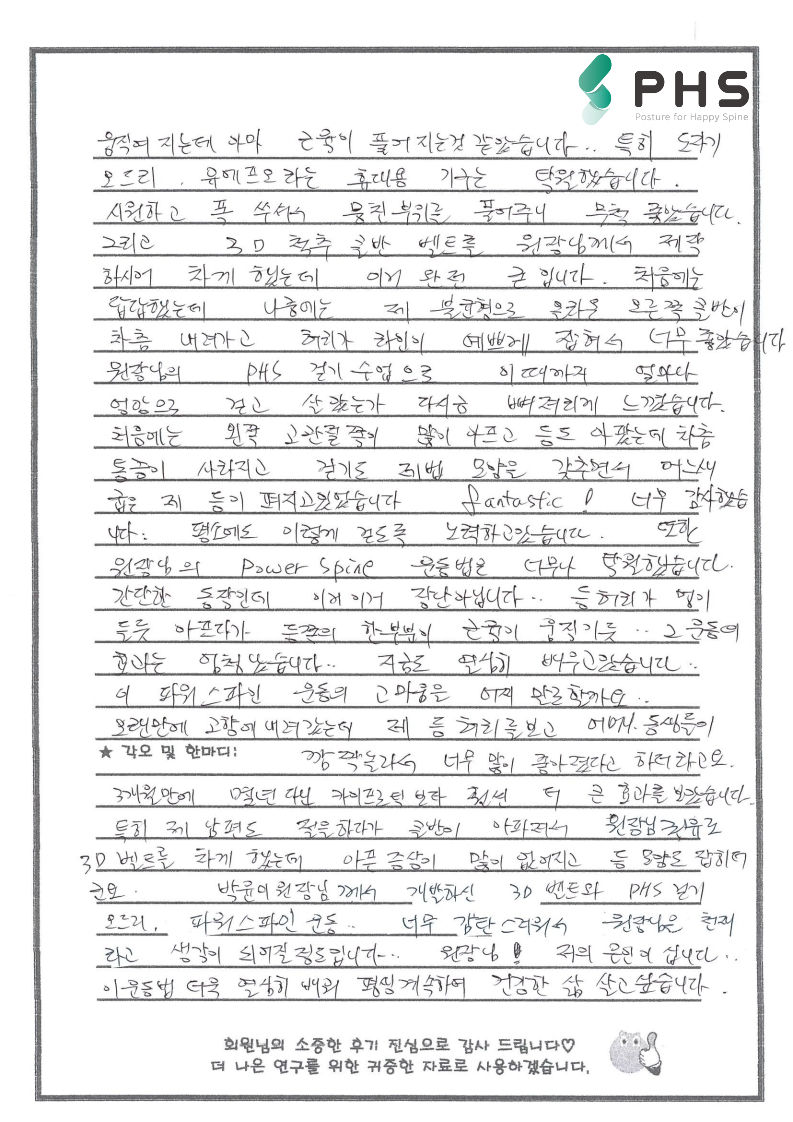 PHS
Posture for Happy Spine
움직여 지는데 아마 근육이 풀어 지는것 같았습니다.. 특히 도자기
오드리, 유에프오 라는 휴대용 기구는 탁월했습니다.
시원하고 푹 쑤셔서 뭉친부위를 풀어주니 무척 좋았습니다.
그리고 3D 척추 골반 벨트를 원장님께서 제작
하시어 차게 했는데 이거 완전 큰 입니다. 처음에는
답답했는데 나중에는 제 불균형으로 올라온 오른쪽 골반이
차츰 내려가고 허리가 라인이 예쁘게 잡혀서 너무 좋았습니다
원장님의 PHS 걷기 수업으로 이때까지 얼마나
엉망으로 걷고 살았는가 다시금 뼈저리게 느꼈습니다.
처음에는 왼쪽 고관절쪽이 많이 아프고 등도 아팠는데 차츰
통증이 사라지고 걷기도 제법 모양을 갖추면서 어느새
굽은 제 등이 펴지고있었습니다 fantastic! 너무 감사했습
니다: 평소에도 이렇게 걷도록 노력하고있습니다. 또한
원장님의 Power Spine 운동법은 너무나 탁월했습니다.
간단한 동작인데 이거이거 장난아닙니다.. 등허리가 멍이
두릇 아프다가 등쪽의 한부분이 근육이 움직기듯.. 그 운동의
효과는 엄청났습니다.. 지금도 열심히 배우고있습니다..
이 파워스파인 운동의 고마움을 어찌 말로할까요..
오랜만에 고향에 내려갔는데 제 등허리를보고 어머니. 동생들이
★ 각오 및 한마디: 깜짝놀라서 너무 많이 좋아졌다고 하더라고요.
3개월만에 몇년 다닌 카이프로틱 보다 훨씬 더 큰 효과를 보았습니다.
특히 제 남편도 걸음하다가 골반이 아파져서 원장님 권유로
3D 벨트를 차게 했는데 아픈증상이 많이 없어지고 등 모양도 잡히더
군요. 박윤미원장님께서 개발하신 3D 벨트와 PHS 걷기
오드리, 파워스파인 운동.. 너무 감탄스러워서 원장님은 천재
라고 생각이 되어질정도입니다... 원장님! 저의 은인이 십니다..
이운동법 더욱 열심히 배워 평생 계속하여 건강한 삶 살고 싶습니다.
회원님의 소중한 후기 진심으로 감사 드립니다♡
더 나은 연구를 위한 귀중한 자료로 사용하겠습니다.